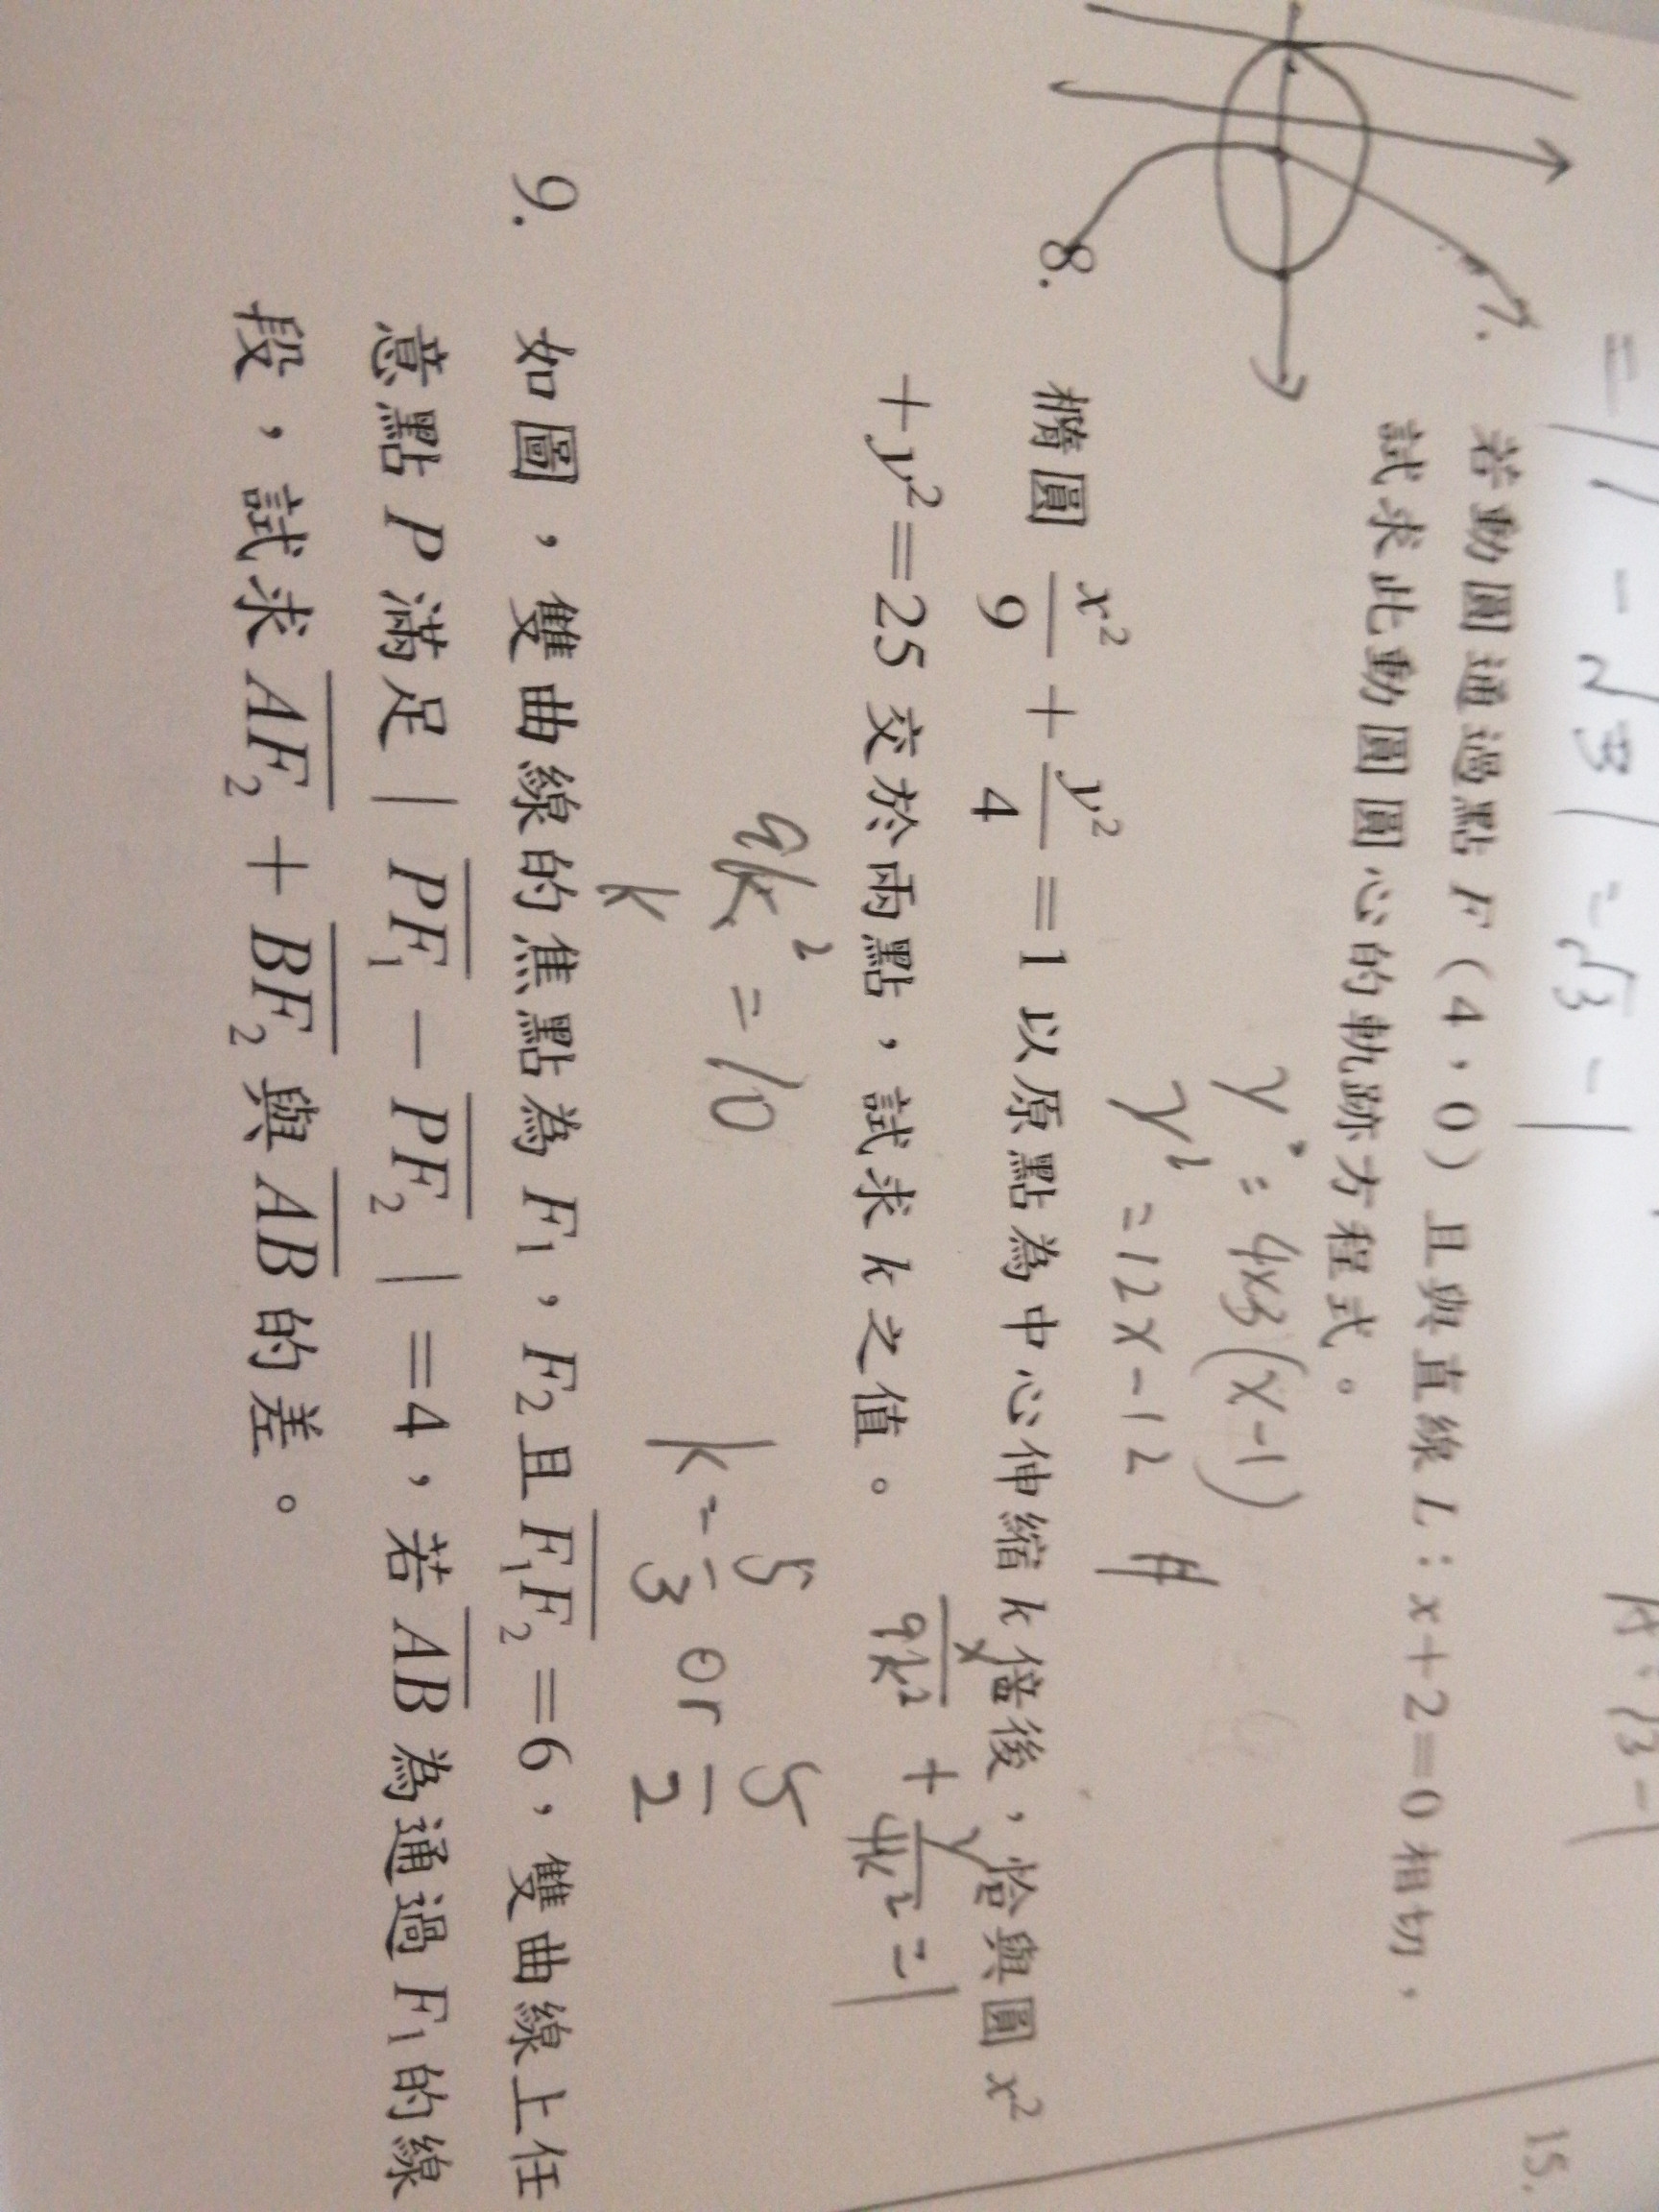 = | 1 - √3 | = √3 - 1
7. 若動圓通過點 F(4,0)且與直線 L:x+2=0 相切,
試求此動圓圓心的軌跡方程式。
y² = 4x3(x-1)
y² = 12x-12 #
8. 橢圓 x²/9 + y²/4 =1 以原點為中心伸縮 k 倍後,恰與圓 x²
+y²=25 交於兩點,試求 k 之值。
x/9k² + y/4k² = 1
9k² = 10
k
k = 5/3 or 5/2
9. 如圖,雙曲線的焦點為 F₁,F₂ 且 F₁F₂=6,雙曲線上任
意點 P 滿足 | PF₁ - PF₂ | =4,若 AB 為通過 F₁ 的線
段,試求 AF₂ + BF₂ 與 AB 的差。
15.